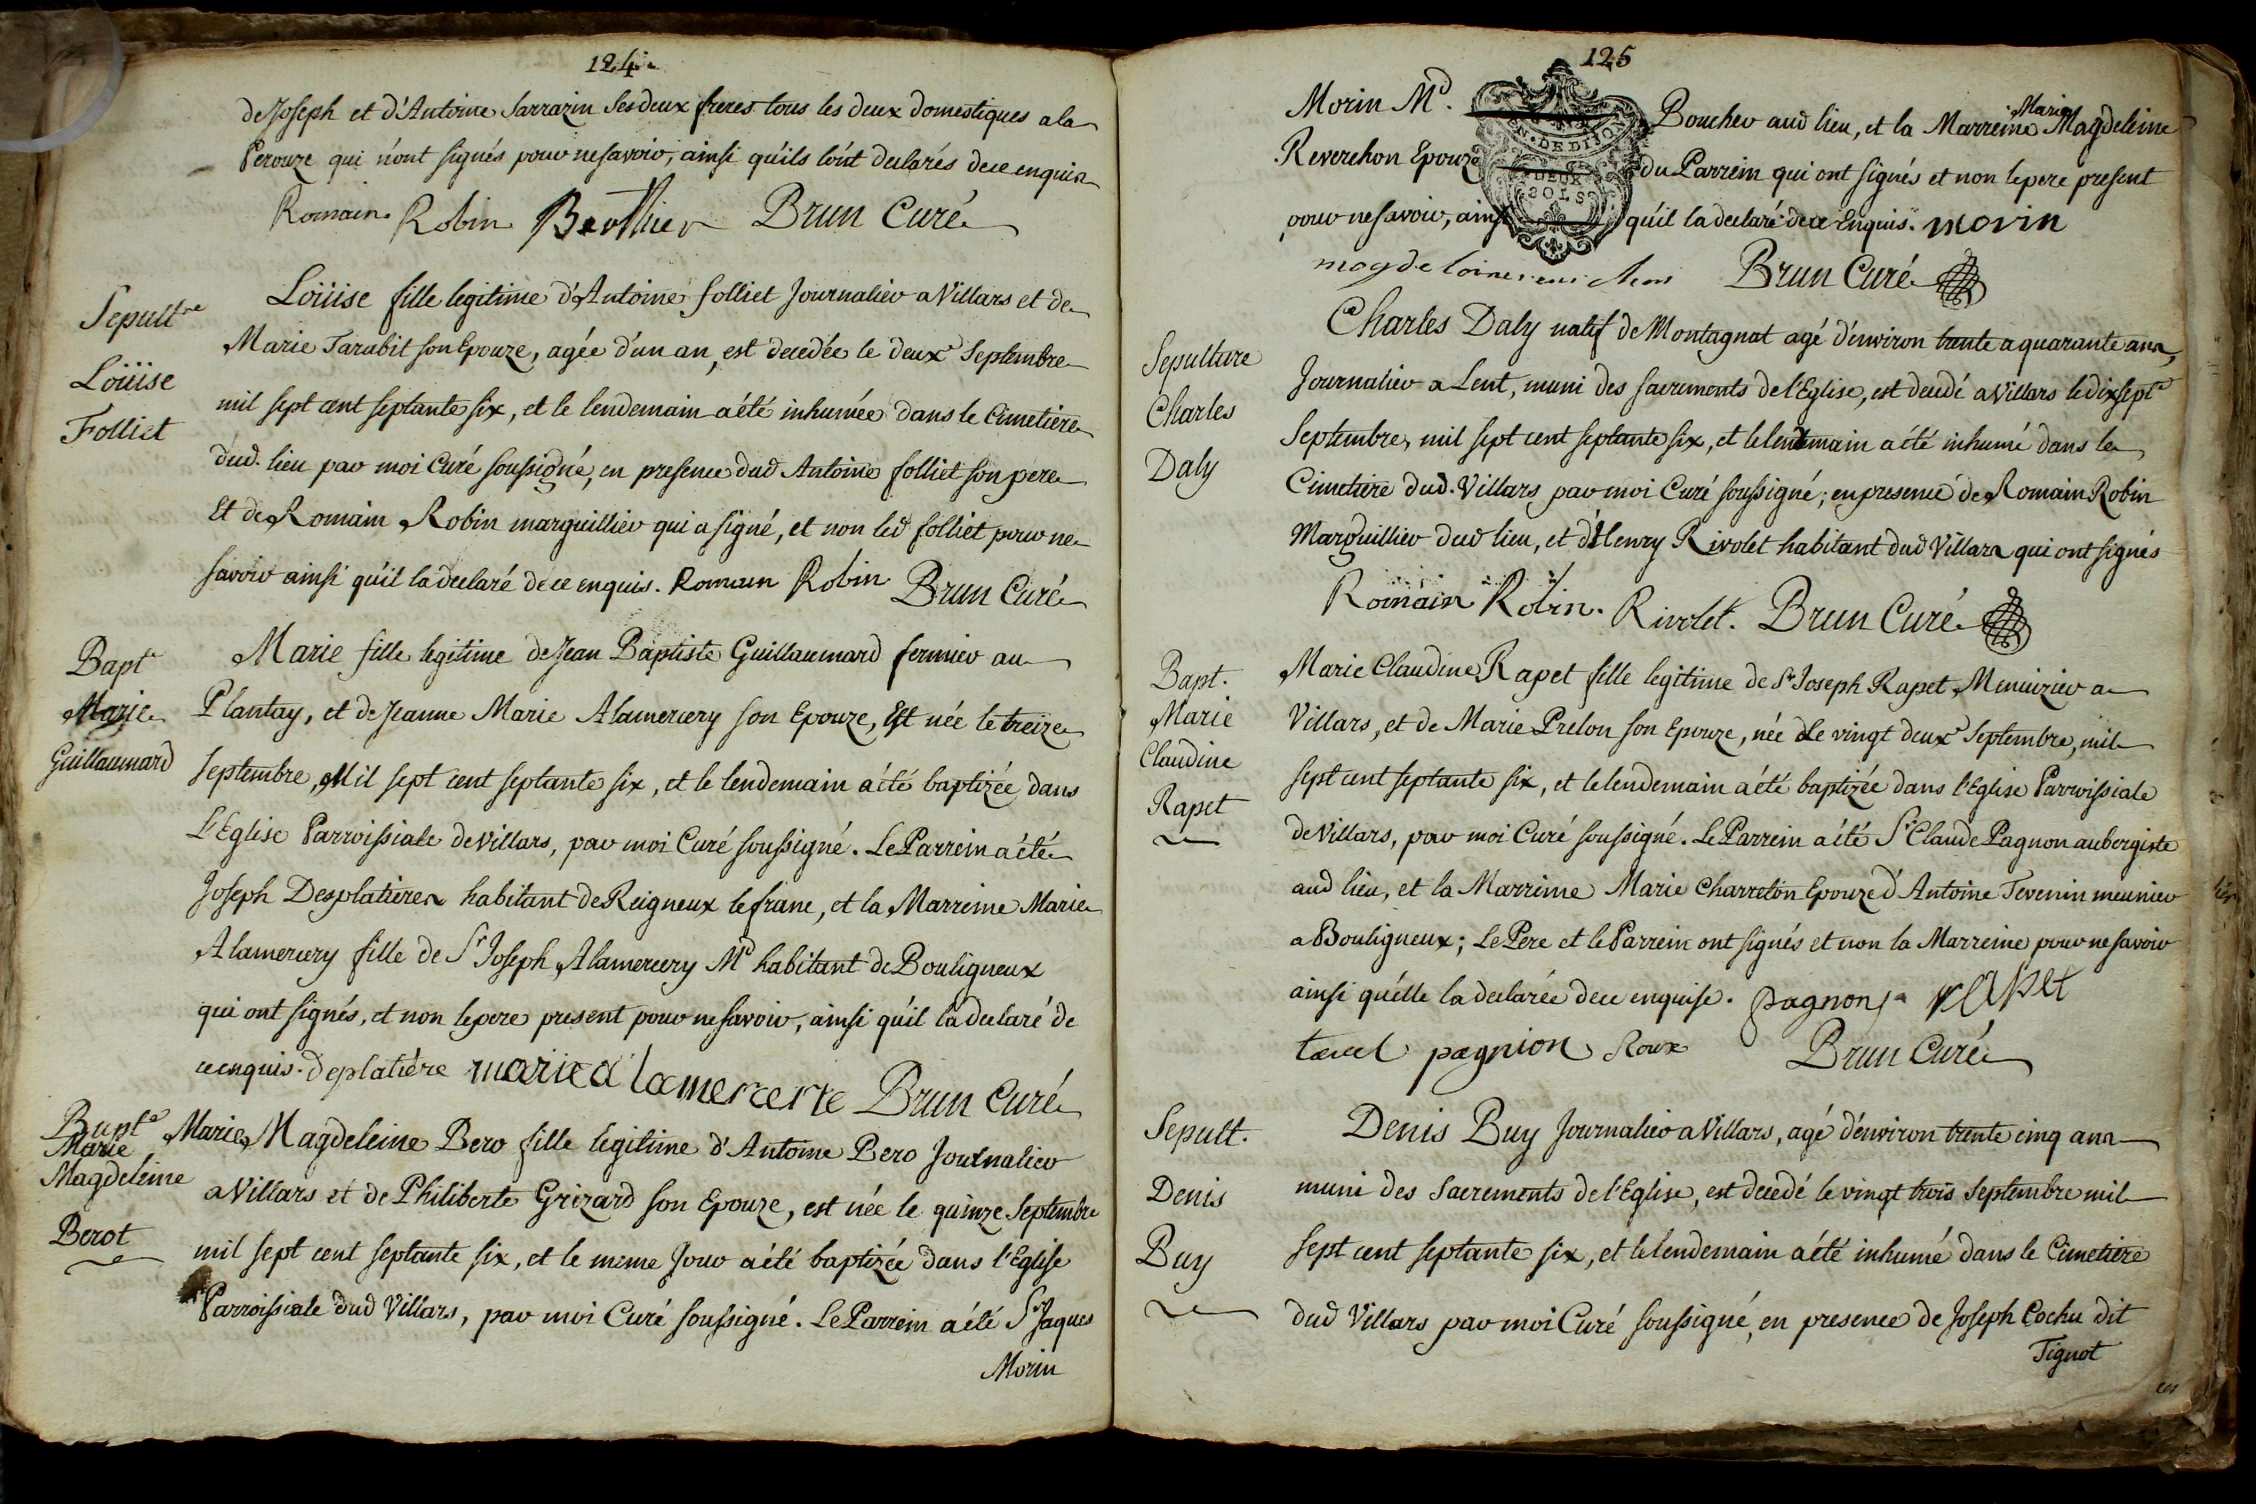 124.
de Joseph et d'Antoine Sarrazin ses deux freres tous les deux domestiques a la
Perouze qui n'ont signés pour ne savoir, ainsi qu'ils l'ont declarés de ce enquis
Romain Robin Berthier Brun Curé
Sepult.re
Loüise
Folliet
Loüise fille legitime d'Antoine folliet Journalier a Villars et de
Marie Tarabit son Epouze, agée d'un an, est decedée le deux.e Septembre
mil sept cent septante six, et le lendemain a été inhumée dans le Cimetiere
dud. lieu par moi Curé soussigné, en presence dud Antoine folliet son pere
Et de Romain Robin marguillier qui a signé, et non led folliet pour ne
savoir ainsi qu'il la declaré de ce enquis. Romain Robin Brun Curé
Bapt.e
Marie
Guillaumard
Marie fille legitime de Jean Baptiste Guillaumard fermier au
Plantay, et de Jeanne Marie Alamercery son Epouze, Est née le treize
Septembre, Mil sept cent septante six, et le lendemain a été baptizée dans
L'Eglise Parroissiale de Villars, par moi Curé soussigné. Le Parrein a été
Joseph Desplatieres habitant de Reigneux le franc, et la Marreine Marie
Alamercery fille de Sr Joseph Alamercery Md habitant de Bouligneux
qui ont signés, et non le pere present pour ne savoir, ainsi qu'il la declaré de
ce enquis. deplatière marie a lamercerie Brun Curé
Bapt.e
Marie
Magdeleine
Berot
Marie Magdeleine Bero fille legitime d'Antoine Bero Journalier
a Villars et de Philiberte Grizard son Epouze, est née le quinze Septembre
mil sept cent septante six, et le meme Jour a été baptizée dans l'Eglise
Parroissiale dud Villars, par moi Curé soussigné. Le Parrein a été Sr Jaques
Morin
125
Morin Md. Boucher aud lieu, et la Marreine Marie Magdeleine
Reverchon Epouze du Parrein qui ont signés et non le pere present
pour ne savoir, ainsi qu'il la declaré de ce Enquis. morin
DEUX
SOLS
magdeloine Brun Curé
Sepulture
Charles
Daly
Charles Daly natif de Montagnat agé d'environ trente a quarante ans,
Journalier a Lent, muni des sacrements de l'Eglise, est decedé a Villars le dix sept.e
Septembre, mil sept cent septante six, et le lendemain a été inhumé dans le
Cimetiere dud. Villars par moi Curé soussigné; en presence de Romain Robin
Marguillier dud lieu, et d'Henry Rivolet habitant dud Villars qui ont signés
Romain Robin. Rivolet. Brun Curé
Bapt.
Marie
Claudine
Rapet
Marie Claudine Rapet fille legitime de Sr Joseph Rapet Menuizier a
Villars, et de Marie Prelon son Epouze, née le vingt deux.e Septembre, mil
sept cent septante six, et le lendemain a été baptizée dans l'Eglise Parroissiale
de Villars, par moi Curé soussigné. Le Parrein a été Sr Claude Pagnon aubergiste
aud lieu, et la Marreine Marie Charreton Epouze d'Antoine Tevenin meunier
a Bouligneux; Le Pere et le Parrein ont signés et non la Marreine pour ne savoir
ainsi qu'elle la declarée de ce enquise. pagnon rapet
pagnion Roux Brun Curé
Sepult.
Denis
Buy
Denis Buy Journalier a Villars, agé d'environ trente cinq ans
muni des Sacrements de l'Eglise, est decedé le vingt trois Septembre mil
sept cent septante six, et le lendemain a été inhumé dans le Cimetiere
dud Villars par moi Curé soussigné, en presence de Joseph Cochu dit
Tignot